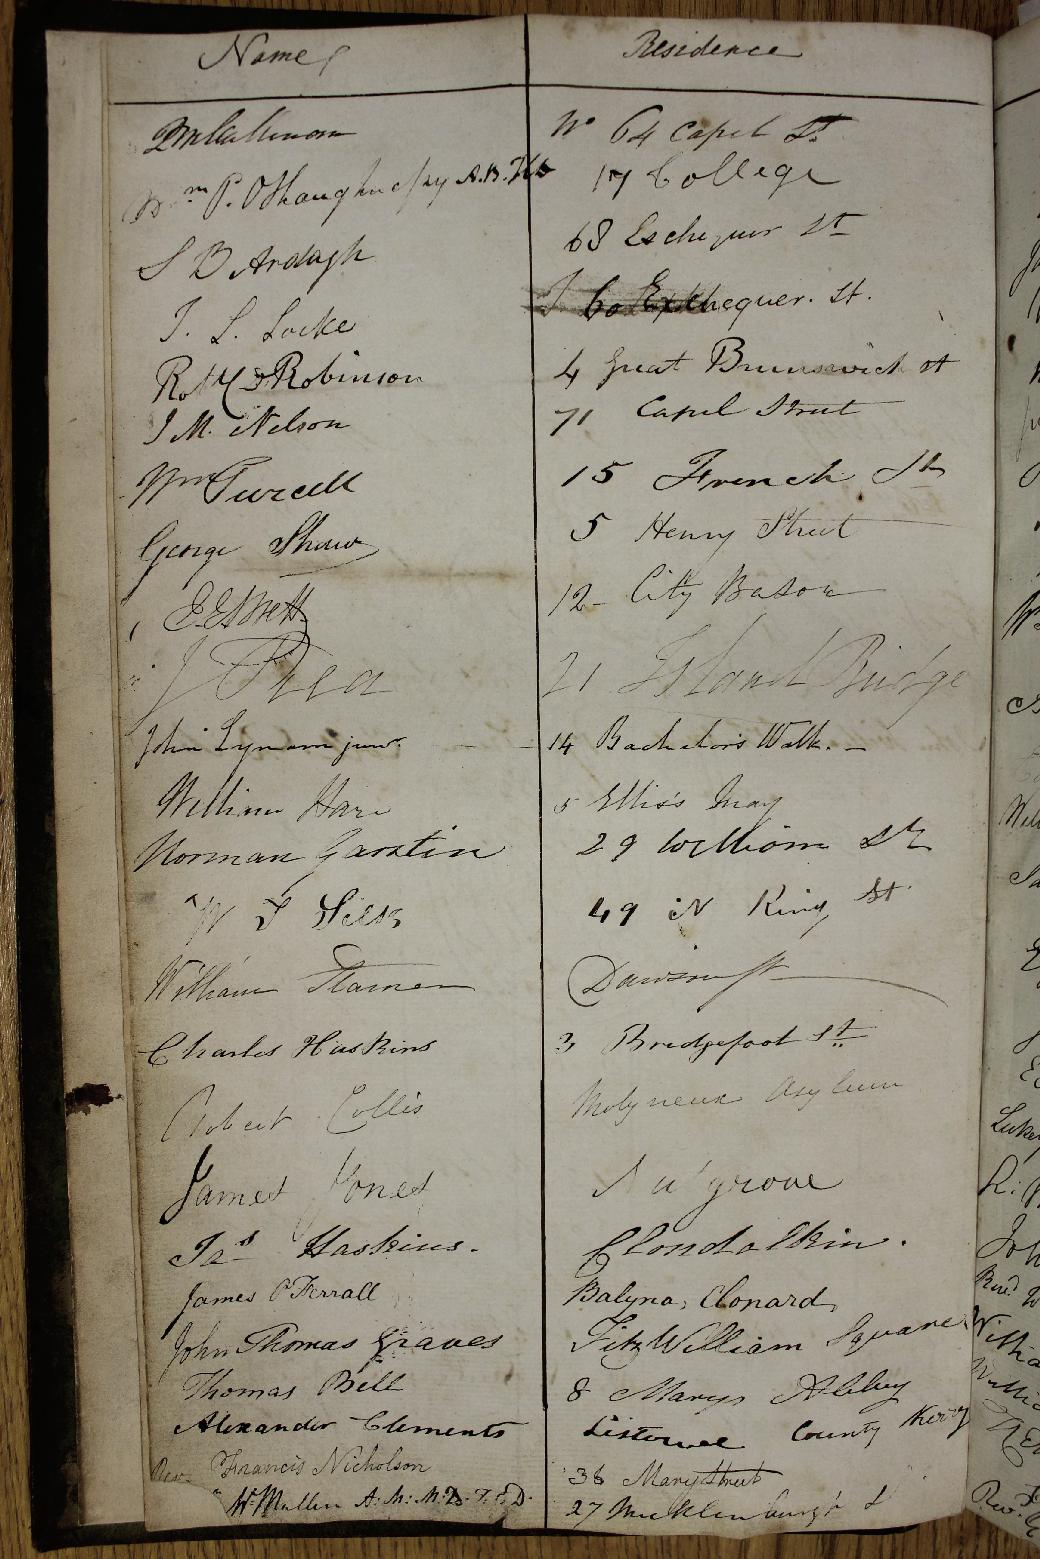 Name Residence
No 64 Capel St.
Wm P. O'Shaughnessy A.B. 17 College
S B Ardagh 68 Exchequer St
J. L. Locke 60 Exchequer. St.
Robinson 4 Great Brunswick st
J M. Nelson 71 Capel Street
Wm Purcell 15 French St
George Shaw 5 Henry Street
12 City Bason
J Rea 21 Island Bridge
John Lynam junr. 14 Bachelors Walk.
William Hare 5 Ellis's Quay
Norman Garstin 29 William St
W 49 N King St
William Stamer Dawson St
Charles Haskins 3 Bridgefoot St
Robert Collis Molyneux Asylum
James Jones Nutgrove
Jas Haskins. Clondalkin.
James O'Ferrall Balyna, Clonard,
John Thomas Graves FitzWilliam Square
Thomas Bell 8 Marys Abbey
Alexander Clements Listowel County Kerry
Rev. Francis Nicholson 36 Mary Street
W. Mullen A.M. 27 Mecklenburgh S